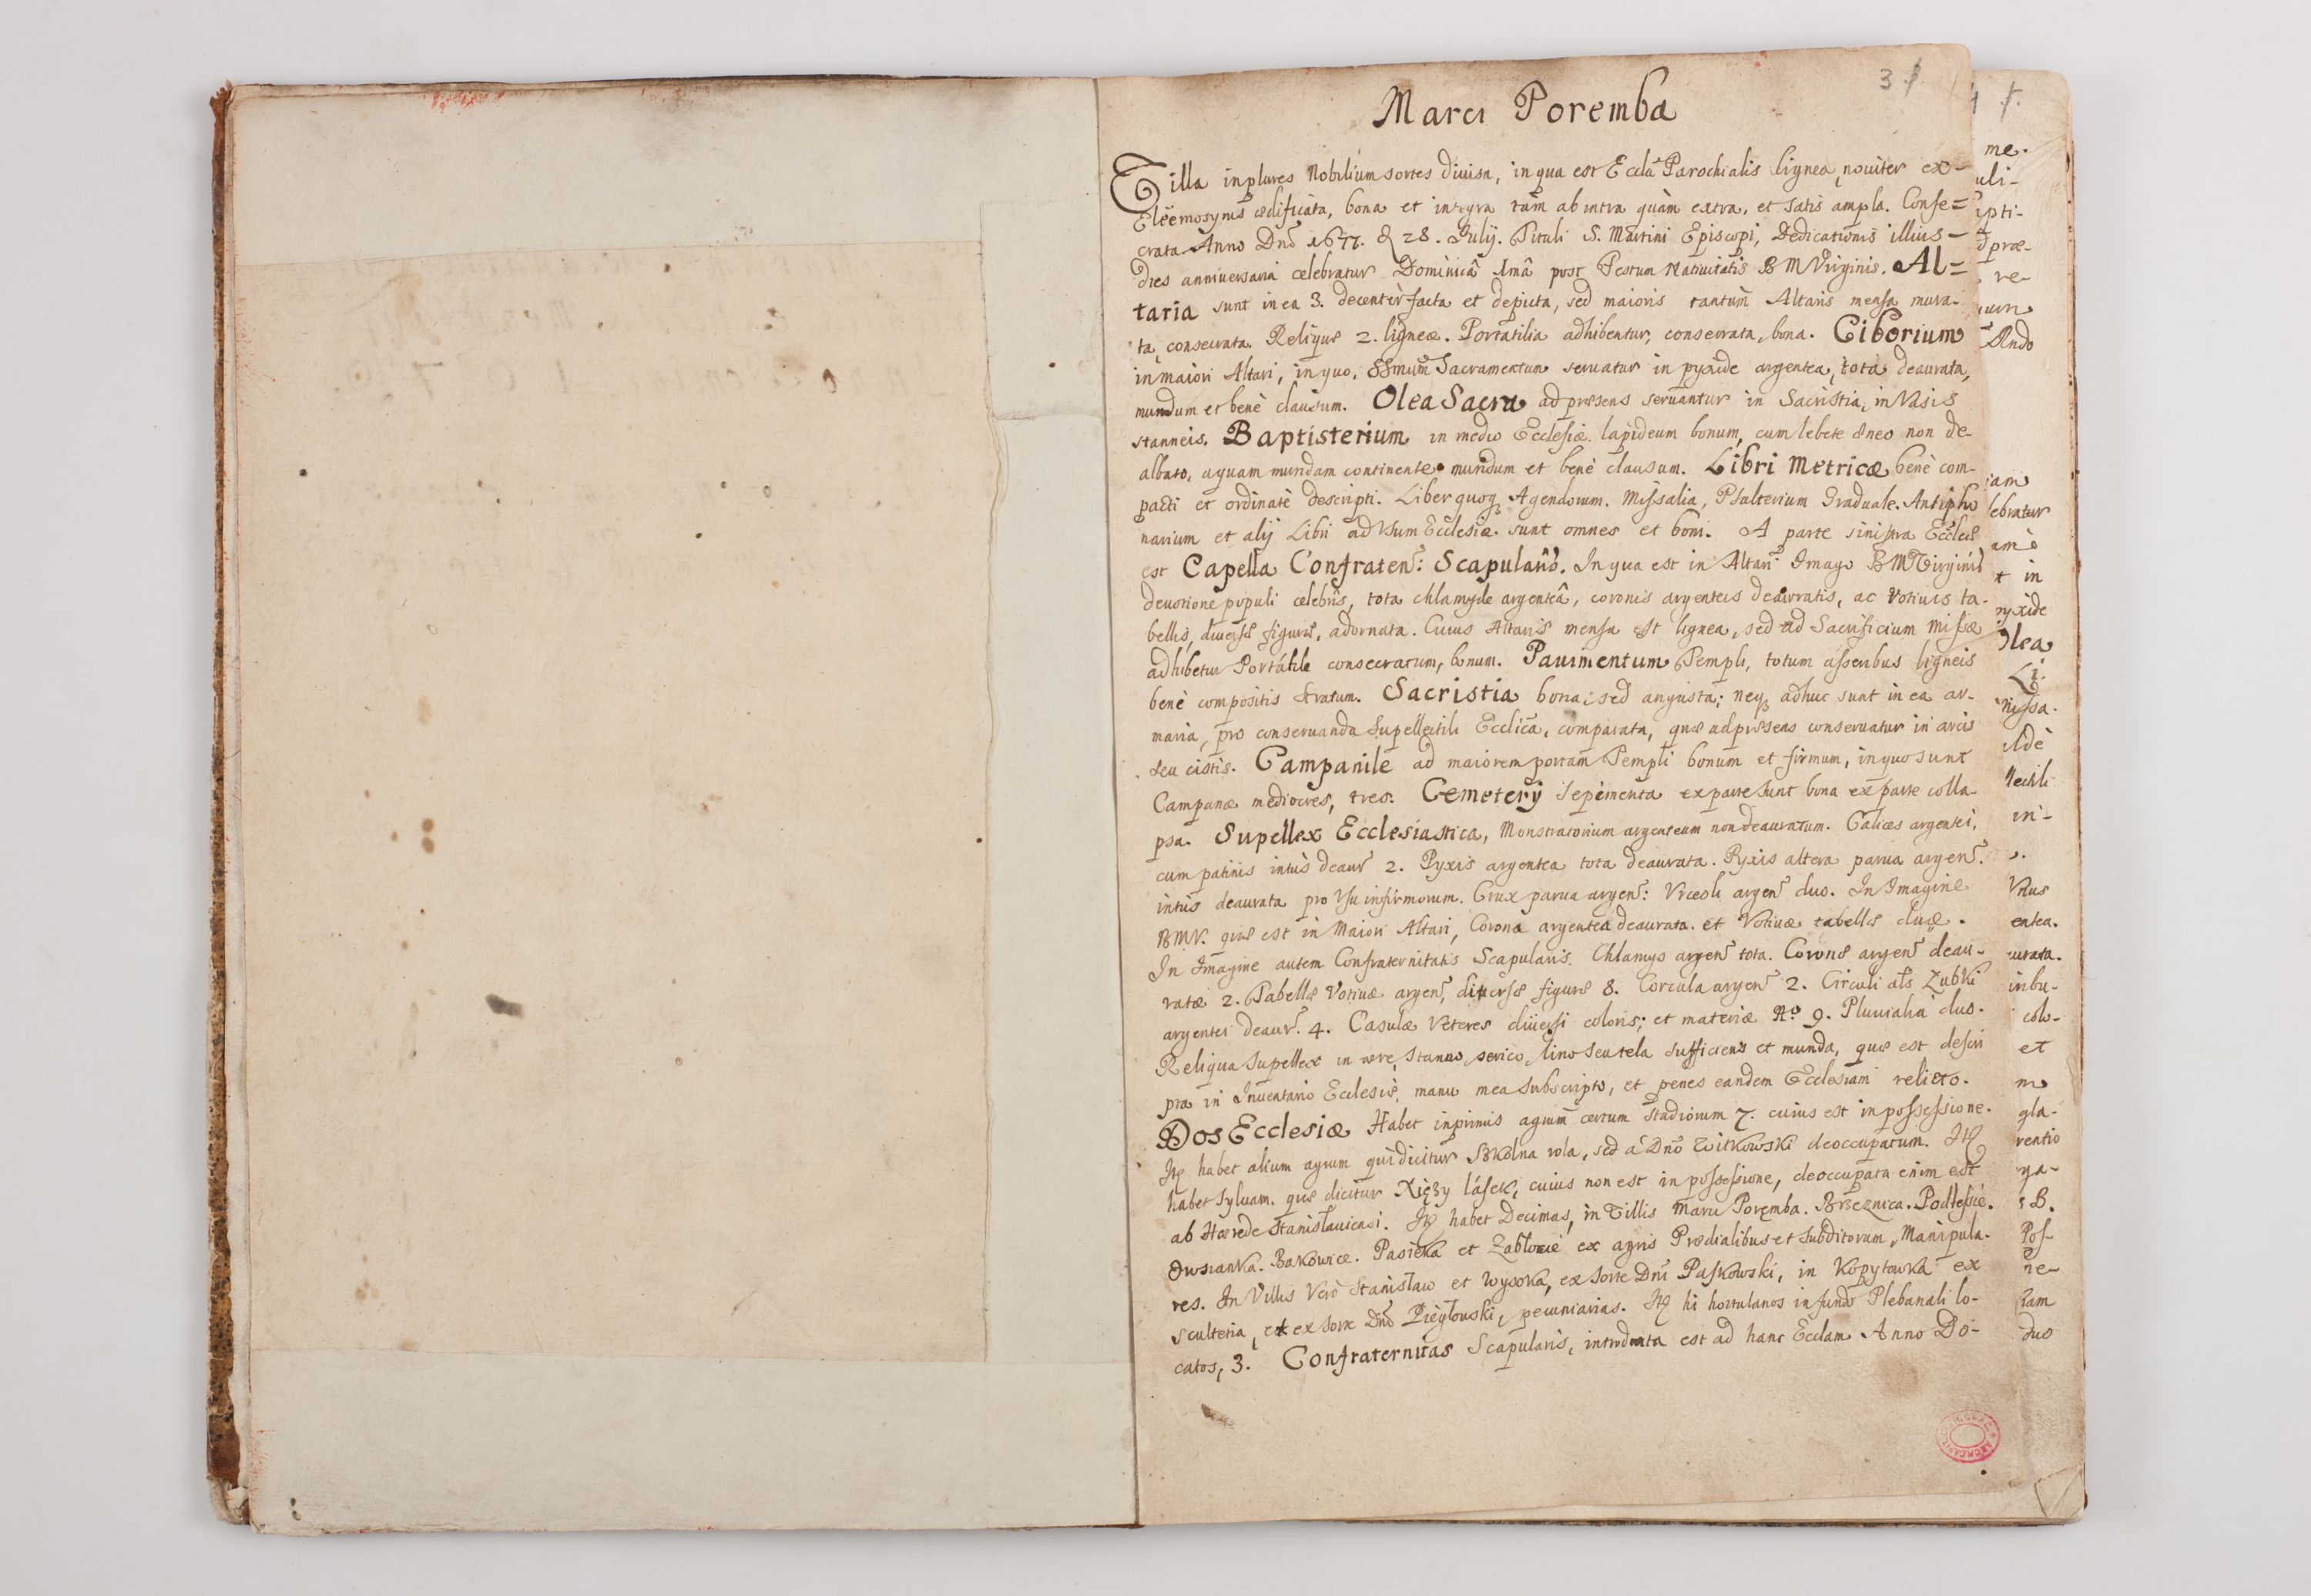 3
Marci Poremba
Villa in plures Nobilium sortes diuisa, in qua est Eccla Parochialis lignea, nouiter ex-
Eleëmosynis ædificata, bona et integra tàm ab intra quàm extra, et satis ampla. Conse=
crata Anno Dnĩ 1677. d 28. Julij. Tituli S. Martini Episcopi, Dedicationis illius-
dies anniuersaria celebratur Dominicâ Imâ post Festum Natiuitatis B M Virginis. Al=
taria sunt in ea 3. decentèr facta et depicta, sed maioris tantùm Altaris mensa mura-
ta, consecrata. Reliquæ 2. ligneæ. Portatilia adhibentur, consecrata, bona. Ciborium
in maiori Altari, in quo, SSmum Sacramentum seruatur in pyxide argentea, tota deaurata,
mundum et benè clausum. Olea Sacra ad præsens seruantur in Sacristia, in Vasis
stanneis. Baptisterium in medio Ecclesiæ lapideum bonum, cum lebete æneo non de-
albato, aquam mundam continente mundum et benè clausum. Libri Metricæ benè com-
pacti et ordinatè descripti. Liber quoq Agendorum. Missalia, Psalterium Graduale. Antipho
narium et alij Libri ad Vsum Ecclesiæ sunt omnes et boni. A parte sinistra Ecclesiæ
est Capella Confraten: Scapularis. In qua est in Altari Imago B M Virginis
deuotione populi celebris, tota chlamyde argenteâ, coronis argenteis deauratis, ac Votiuis ta-
bellis, diuersæ figuræ, adornata. Cuius Altaris mensa est lignea, sed ad Sacrificium Missæ
adhibetur Portatile consecratum, bonum. Pauimentum Templi, totum asseribus ligneis
benè compositis stratum. Sacristia bona, sed angusta; neq adhuc sunt in ea ar-
maria, pro conseruanda Supellectili Ecclica, comparata, quæ ad præsens conseruatur in arcis
seu cistis. Campanile ad maiorem portam Templi bonum et firmum, in quo sunt
Campanæ mediocres, tres. Cemeterij sepimenta ex parte sunt bona ex parte colla-
psa. Supellex Ecclesiastica, Monstratorium argenteum non deauratum. Calices argentei,
cum patinis intùs deaur 2. Pyxis argentea tota deaurata. Pyxis altera parua argen.
intùs deaurata pro Vsu infirmorum. Crux parua argen: Vrceoli argen duo. In Imagine
BMV. quæ est in Maiori Altari, Corona argentea deaurata. et Votiuæ tabellæ duæ.
In Imagine autem Confraternitatis Scapularis. Chlamys argen tota. Coronæ argen deau-
ratæ 2. Tabellæ Votiuæ argen, diuersæ figuræ 8. Corcula argen 2. Circuli als Zubki
argentei deaur. 4. Casulæ Veteres diuersi coloris; et materiæ No 9. Pluuialia duo.
Reliqua Supellex in ære, stanno, serico, lino seu tela sufficiens et munda, quæ est descri
pta in Inuentario Ecclesiæ, manu mea subscripto, et penes eandem Ecclesiam relicto.
Dos Ecclesiæ Habet inprimis agrum certum stadiorum 7. cuius est in possessione.
Itę habet alium agrum qui dicitur Szkolna rola, sed à Dnõ Witkowski deoccupatum. Itę
habet syluam. quæ dicitur Xięży lásek, cuius non est in possessione, deoccupata enim est
ab Hærede Stanislauicensi. Itę habet Decimas, in Villis Marci Poręmba. Brzeznica. Podlesie.
Owsianka. Bakowice. Pasieka et Zablocie ex agris Prædialibus et subditorum, Manipula-
res. In Villis Verò Stanisław et Wysoka, ex sorte Dnĩ Paszkowski, in Kopytowka ex
scultetia, et ex sorte Dnĩ Piegłouski, pecuniarias. Itę hi hortulanos in fundo Plebanali lo-
catos, 3. Confraternitas Scapularis, introducta est ad hanc Ecclam Anno Do-
me.
uli-
præ-
re-
lebratur
t in
Olea
Li-
et
gla-
ga-
ne-
duo